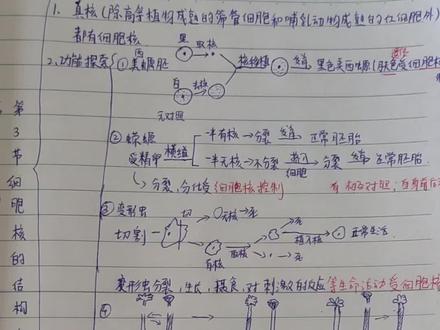 1. 真核(除高等植物成熟的筛管细胞和哺乳动物成熟的红细胞外)
都有细胞核
2、功能探究 ①美西螈
黑 取核
核移植
发育 黑色美西螈(肤色受细胞核
白 去核
无对照
② 蝾螈 受精卵 横缢
一半有核→分裂 发育 正常胚胎
一半无核→不分裂 细胞 分裂 发育 正常胚胎
分裂、分化受细胞核控制
有相互对照,
③变形虫
切割
切
无核→死
有核
取核
→死
植入核
正常生活
变形虫分裂,生长,摄食,对刺激的反应等生命活动受细胞核
④
第
3
节
细
胞
核
的
结
构